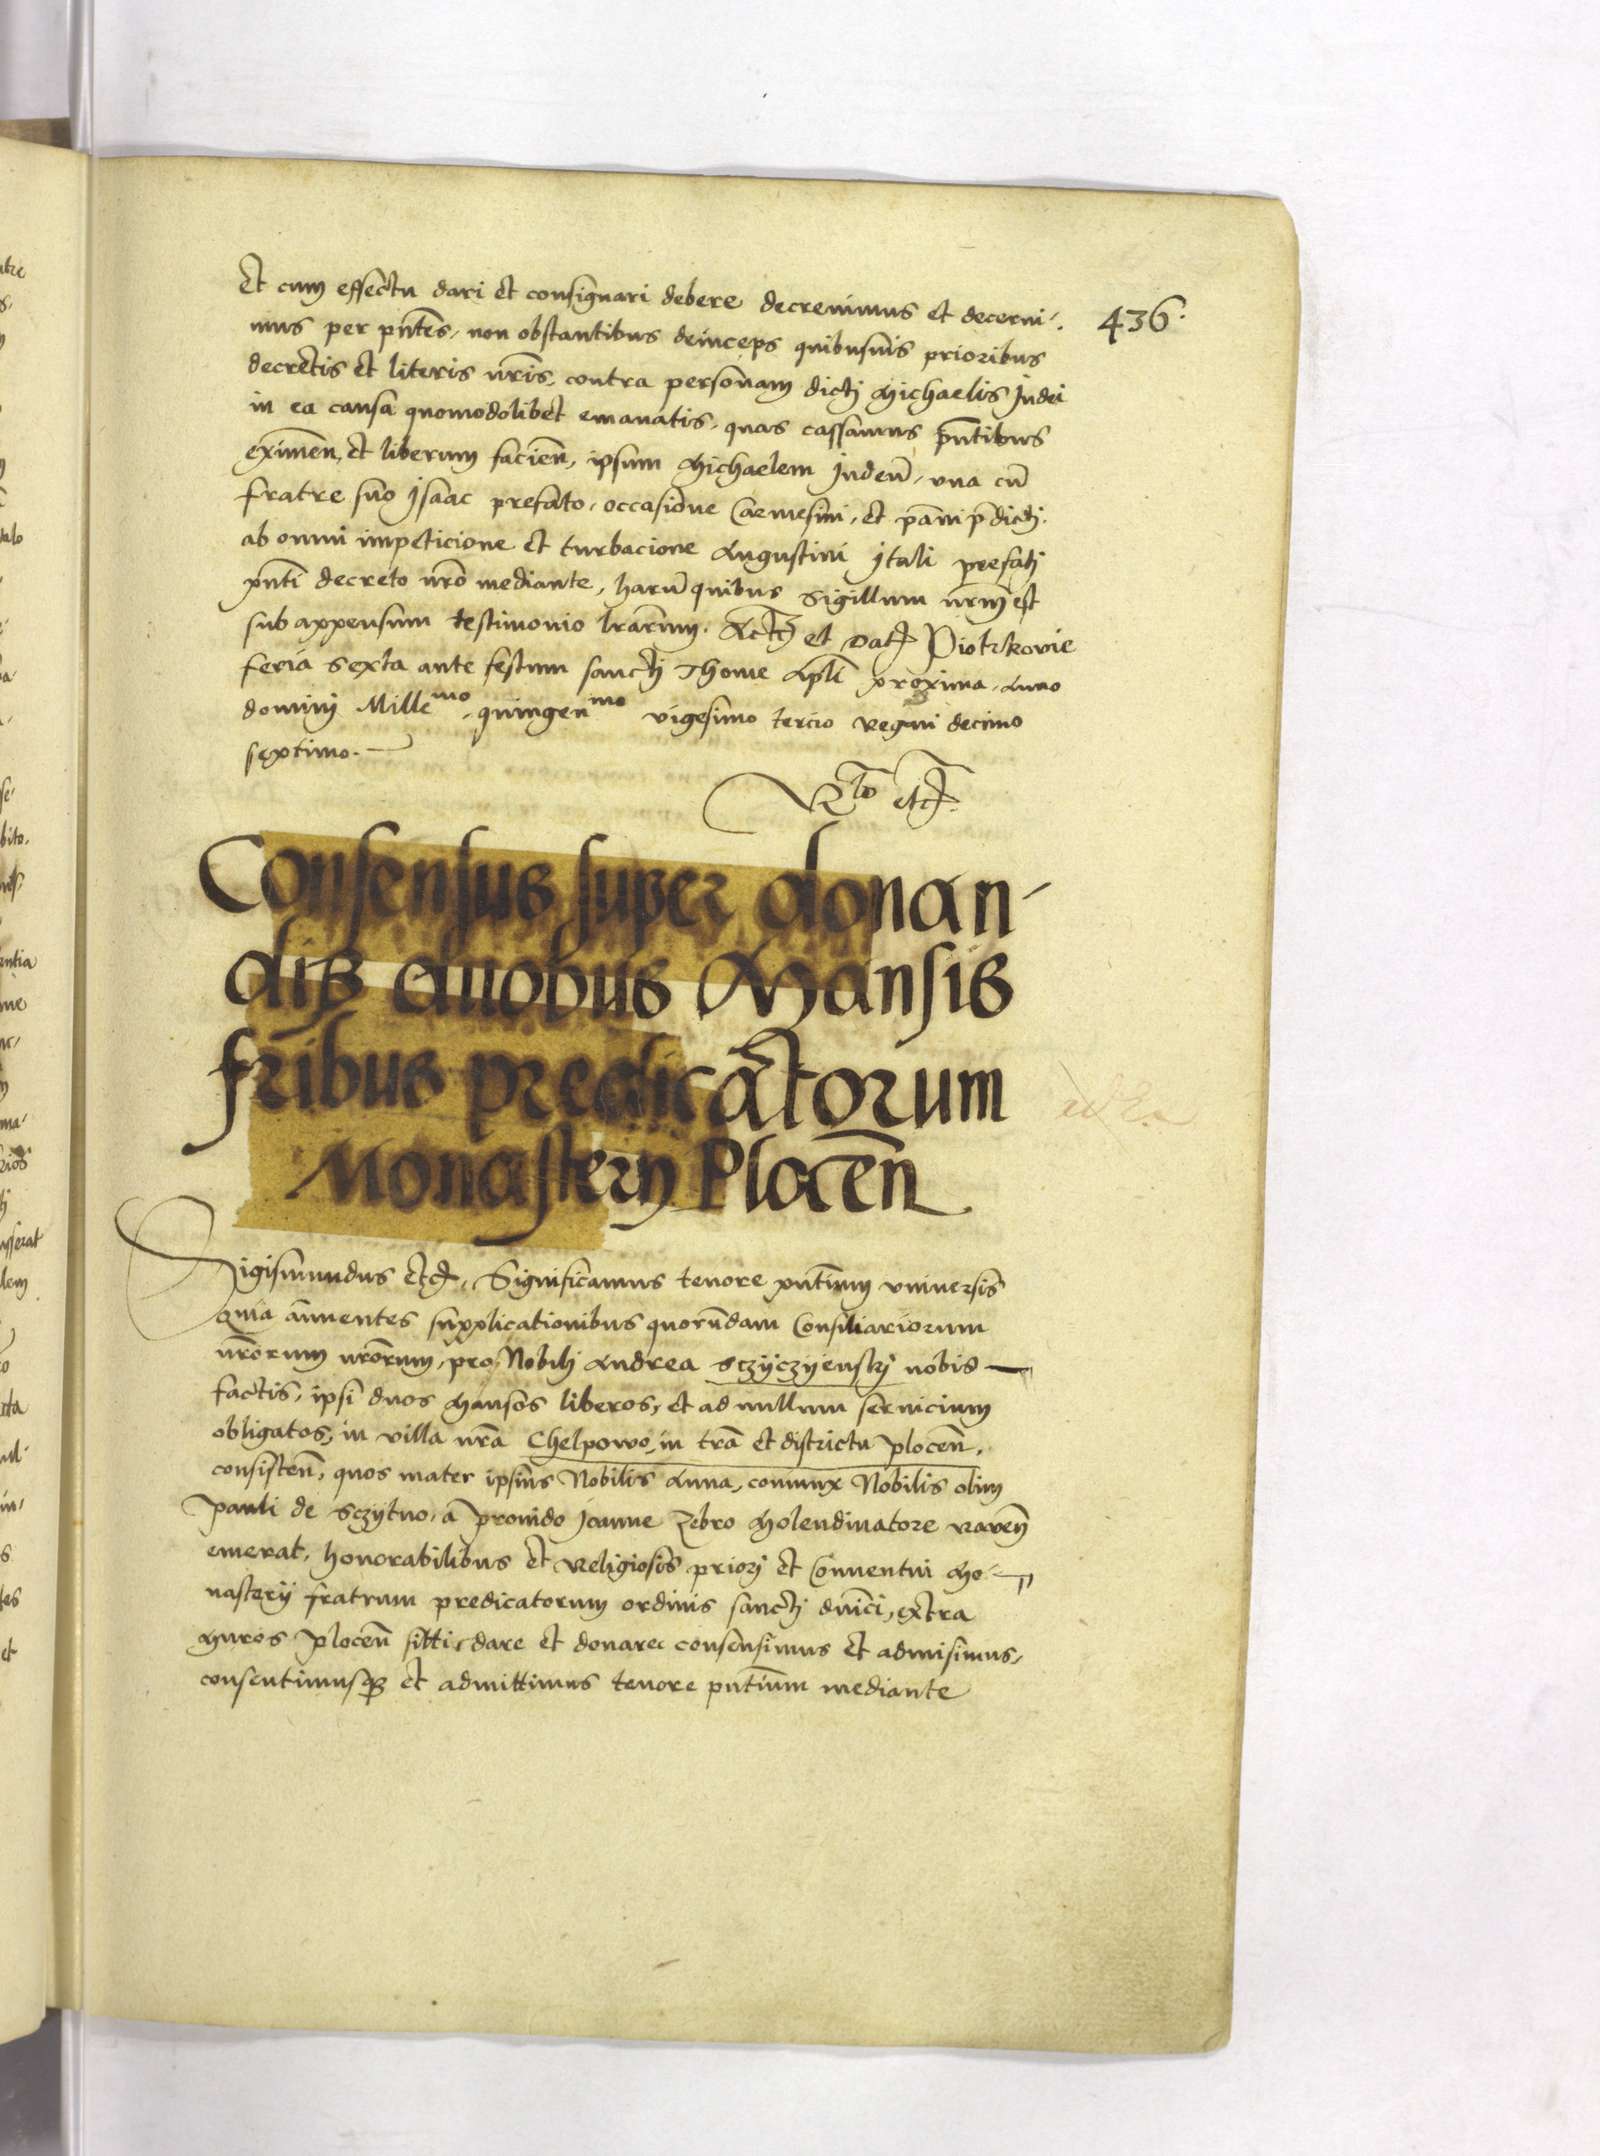 436.
Et cum effectu dari et consignari debere decrevimus et decerni-
mus per pñtes, non obstantibus deinceps quibusvis prioribus
decretis et literis nr̃is, contra personam dictj Michaelis Judei
in ea causa quomodolibet emanatis, quas cassamus pñtibus
eximeñ, et liberum facieñ, ipsum Michaelem Judeũ, una cũ
fratre suo Isaac prefato, occasione Carmesini, et pãni p̃dictj,
ab omni impeticione et turbacione Augustini Itali prefatj
pñti decreto nr̃o mediante, harũ quibus Sigillum nr̃m est
subappensum testimonio lr̃arum. Act̃ et Dat̃ Piotrkovie
feria sexta ante festum sanctj Thome Apl̃i proxima, Anno
dominj Millemo, quingenmo vigesimo tercio regni decimo
septimo.
Rto etc̃.
Consensus super donan-
dis duobus Mansis
fribus predicatorum
Monasterij Ploceñ
Sigismundus etc̃. Significamus tenore pñtium universis
Quia annuentes supplicationibus quorũdam Consiliariorum
nr̃orum nr̃orum, pro Nobilj Andrea Sczyczyenskj nobis
factis, ipsi duos Mansos liberos, et ad nullum servicium
obligatos, in villa nr̃a Chelpowo, in tr̃a et districtu Ploceñ,
consisteñ, quos mater ipsius Nobilis Anna, coniunx Nobilis olim
Pauli de Sczytno, a provido Joanne Zebro Molendinatore
emerat, honorabilibus et Religiosis priorj et Conventui Mo-
nasterij fratrum predicatorum ordinis sanctj dñici, extra
Muros Ploceñ sitti, dare et donare consensimus et admisimus,
consentimusq3 et admittimus tenore pñtium mediante